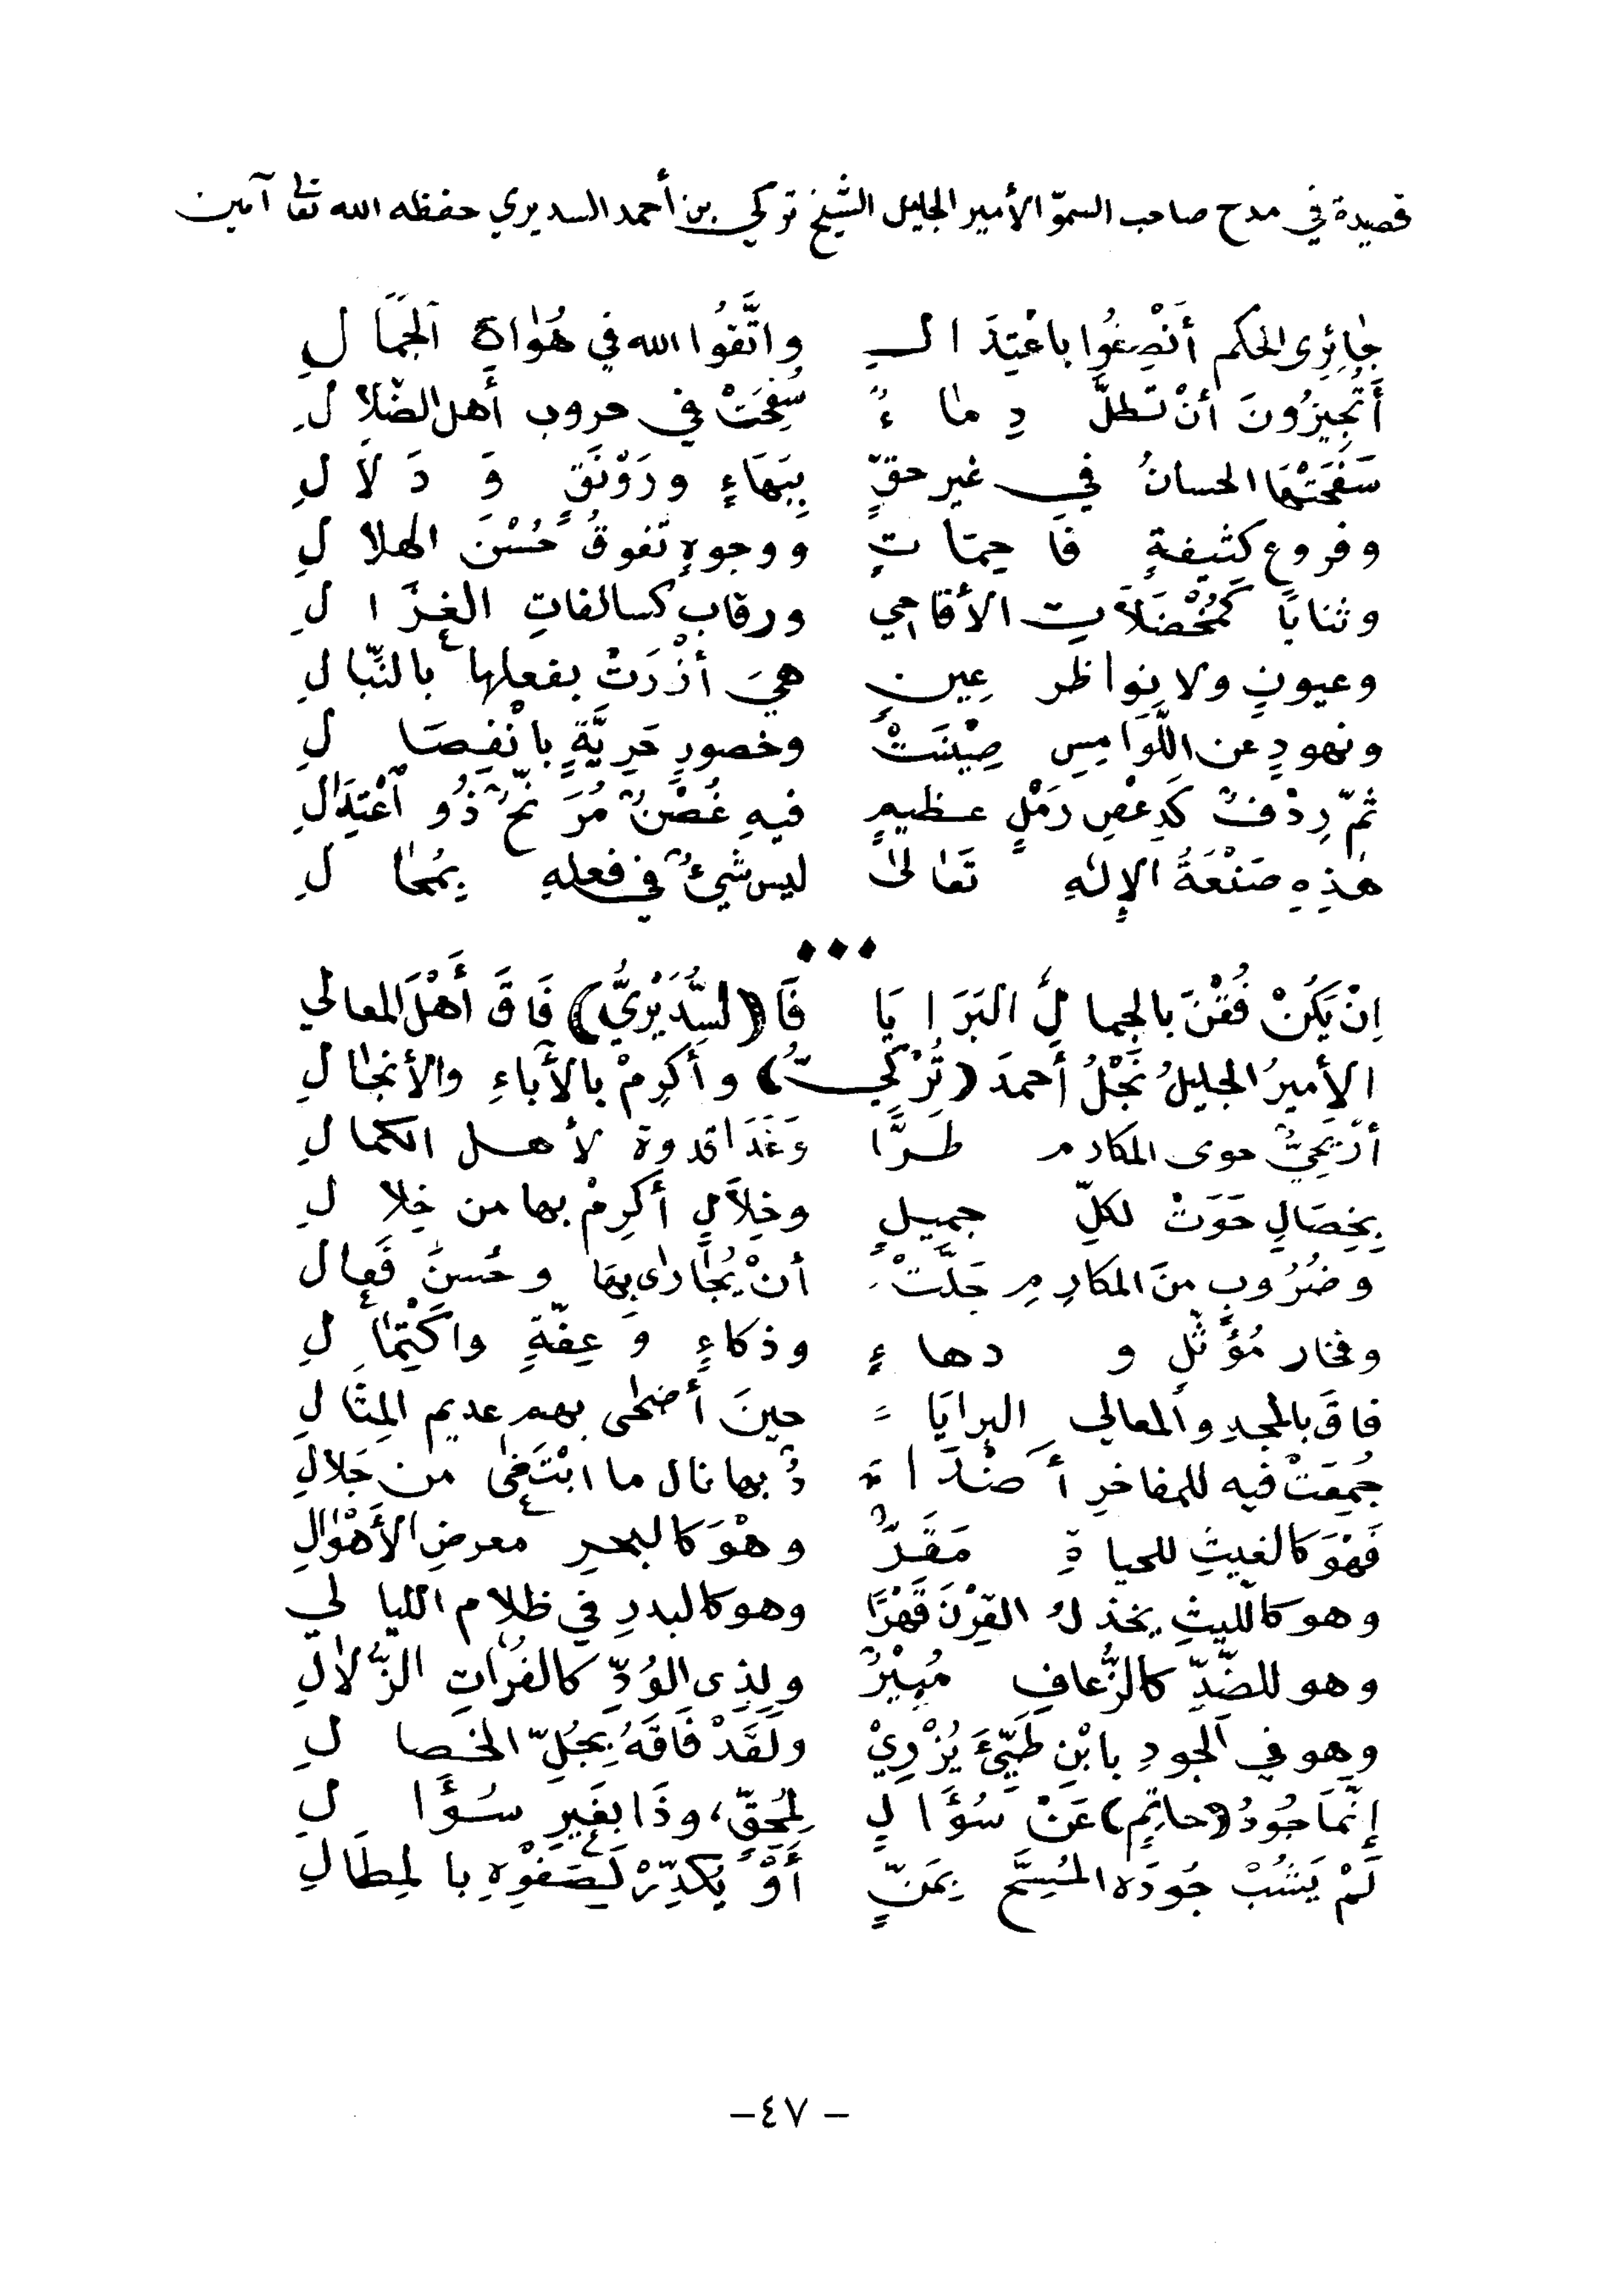 قصيدة في مدح صاحب السموّ الأمير الجليل الشّيخ تركي بن أحمد السديري حفظه الله تعالى آمين
جٰائِرِى الحكم أنْصِفُوا باعْتِدَالِ واتَّقُوا الله في هُوٰاةِ الجَمَالِ
أَتُجِيزُونَ أنْ تُطلَّ دِمٰاءٌ سُفِحَتْ في حروب أَهل الضّلالِ
سَفَحَتْهَا الحسانُ في غير حقٍّ بِبَهَاءٍ ورَوْنَقٍ وَدَلاَلِ
وفروعٍ كثيفةٍ فَاحِمَاتٍ ووجوهٍ تفوقُ حُسْنَ الهلالِ
وثنايَا كَمُخْضَلاَتِ الأقاحِي ورقابٍ كسالفاتِ الغزَالِ
وعيونٍ ولا نواظر عِينٍ هيَ أزْرَتْ بفعلها بالنِّبالِ
ونهودٍ عن اللَّوَامِسِ صِيْنَتْ وخصورٍ حَرِيَّةٍ بانْفِصَالِ
ثمّ رِدْفٌ كَدِعْصِ رَمْلٍ عظيمٍ فيهِ غُصْنٌ مُرَنَّحٌ ذُو اعْتِدَالِ
هٰذِهِ صَنْعَةُ الإِلٰهِ تَعَالىٰ ليس شيءٌ في فعلهِ بِمُحَالِ
إنْ يَكُنْ فُقْنَ بالجمالِ البَرَايَا فَا(لسُّدَيْرِيُّ) فَاقَ أَهْلَ المعالي
الأميرُ الجليلُ نَجْلُ أحمدَ (تُرْكيُّ) وأَكرِمْ بالآباءِ والأنجٰالِ
أرْيَحِيٌّ حوى المكارم طَرًّا وَغَدَا قدوة لأهل الكمالِ
بِخِصَالٍ حَوَتْ لكلِّ جميلٍ وخِلاَلٍ أَكرِمْ بها من خِلالِ
وضُرُوبٍ منَ المكارِمِ جَلَّتْ أنْ يُجٰارىٰ بِهَا وحُسنَ فَعالِ
وفخار مُؤَثَّلٍ ودهاءٍ وذكاءٍ وَعِفّةٍ واكْتِمٰالِ
فاقَ بالمجدِ والمعالي البرايَا حينَ أضحٰى بهم عديم المِثَالِ
جُمِعَتْ فيه للمفاخرِ أَضْدَادٌ بها نال ما ابْتَغىٰ من جَلالِ
فَهْوَ كالغيثِ للحياةِ مَقَرٌّ وهْوَ كالبحرِ معرضِ الأَهْوٰالِ
وهو كاللّيثِ يخذلُ القِرْنَ قَهْرًا وهو كالبدرِ في ظلام الليالي
وهو للضّدِّ كالزُّعافِ مُبِيْرٌ ولِذِى الوُدِّ كالفُرٰاتِ الزُّلالِ
وهو في الجودِ بابْنِ طَيِّئَ يُزْرِيْ ولَقَدْ فَاقَهُ بِجُلِّ الخصالِ
إنّمَا جُودُ (حاتِمٍ) عَنْ سُؤَالٍ لِمُحِقٍّ، وذَا بغَيرِ سُؤَالِ
لَمْ يَشُبْ جُودَه المُسِحَّ بِمَنٍّ أَوْ يُكَدِّرْ لِصَفْوِهِ بالمِطَالِ
- ٤٧ -